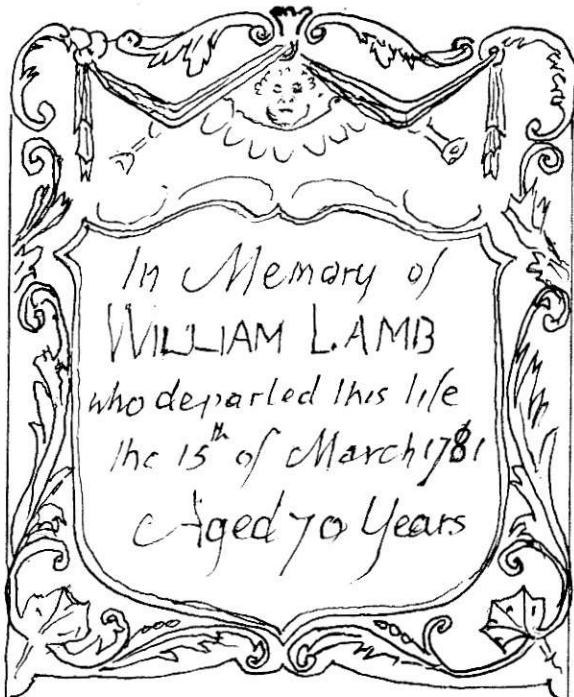 In Memory of
WILLIAM LAMB
who departed this life
the 15th of March 1781
Aged 70 Years